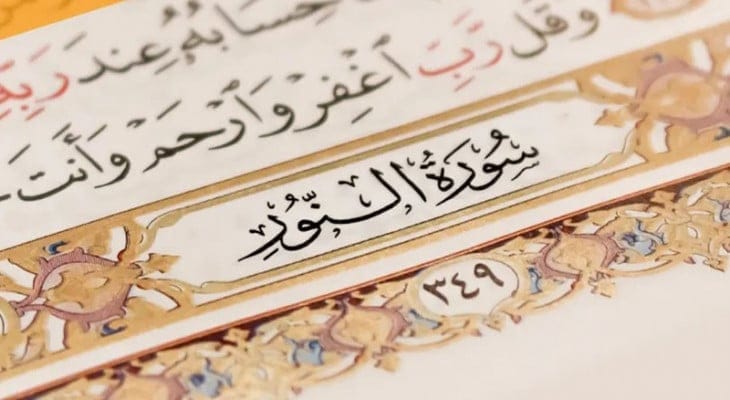 حِسَابُهُۥ عِندَ رَبِّهِۦٓ
وَقُل رَّبِّ ٱغْفِرْ وَٱرْحَمْ وَأَنتَ
سُورَةُ النُّورِ
٣٤٩